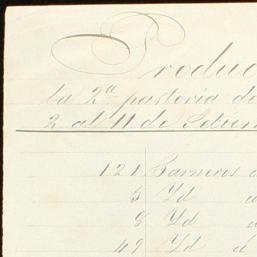 Produc
la 2ª pastoria de
2 al 11 de Setiem
121 Carneros d
5 Yd d
8 Yd d
49 Yd d